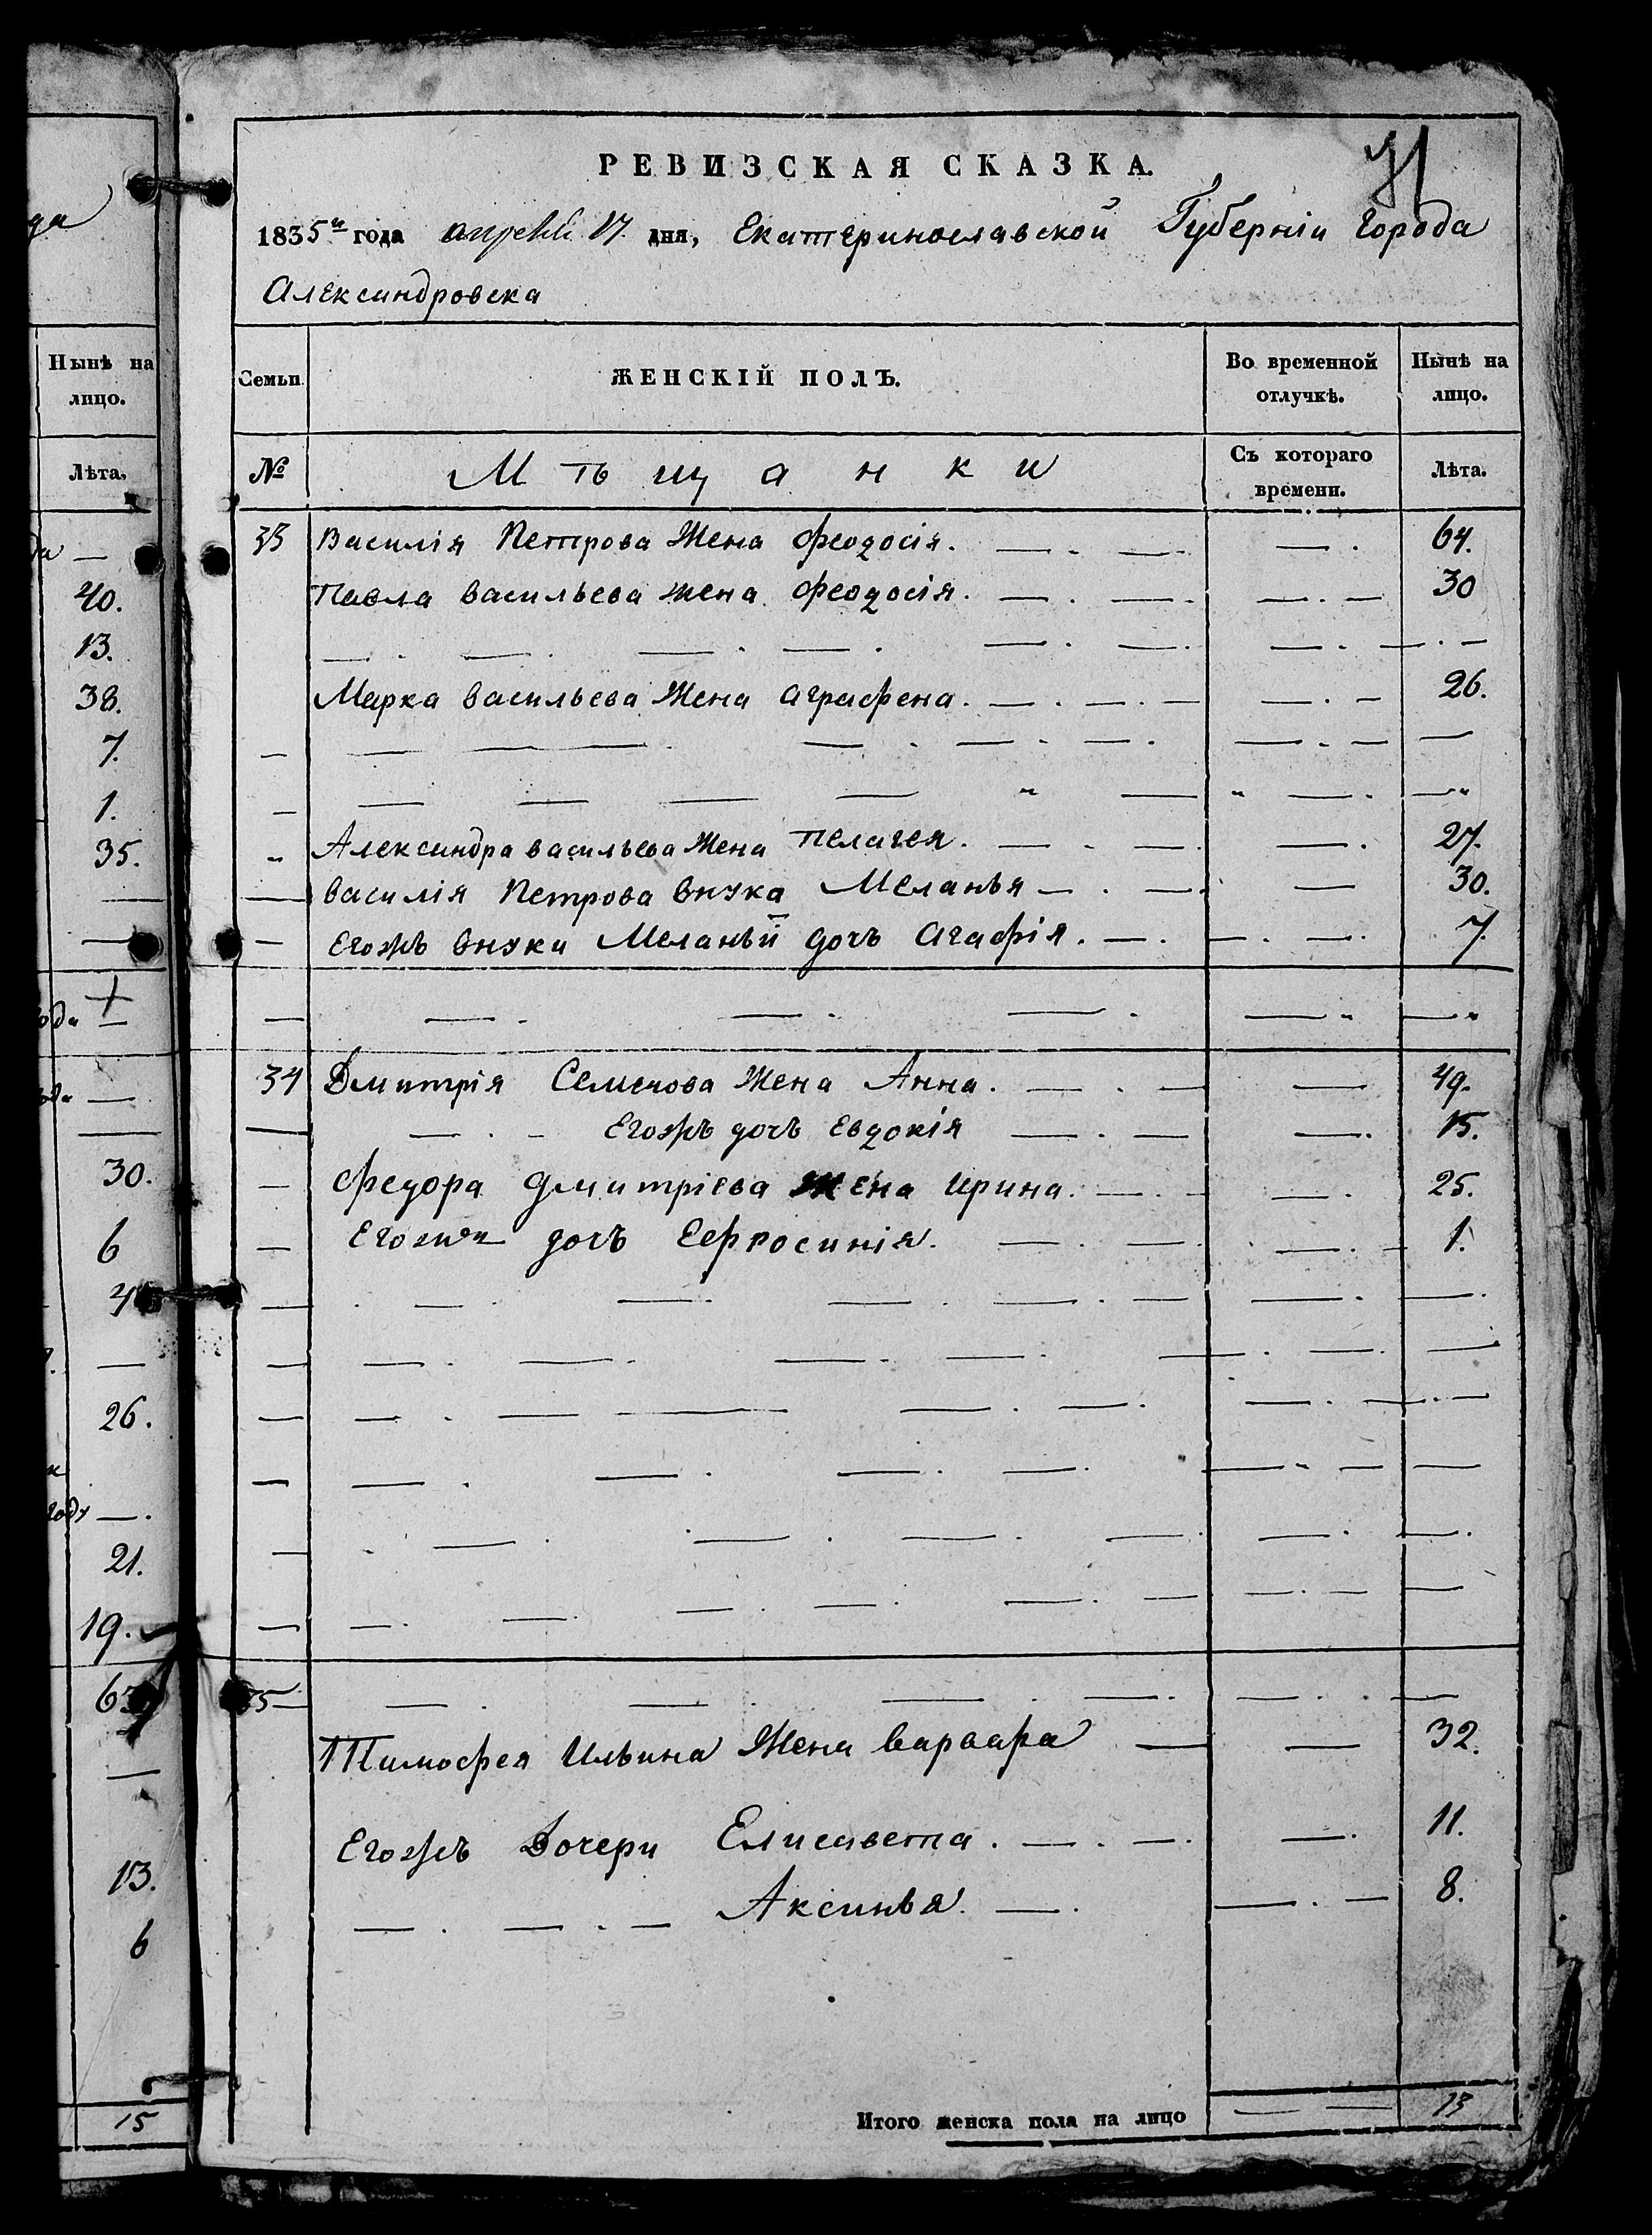 да
Нынѣ на
лицо.
Лѣта.
да —
40.
13.
38.
7.
1.
35.
года —
30.
6
4
26.
году —.
21.
19.
13.
6
15
РЕВИЗСКАЯ СКАЗКА.
1835го года апреля 17 дня, Екатеринославской Губерніи города
Александровска
Семьи. ЖЕНСКІЙ ПОЛЪ. Во временной отлучкѣ. Нынѣ на лицо.
№ Мѣщанки Съ котораго времени. Лѣта.
33 Василія Петрова Жена Феодосія. — . — — . 64.
Павла Васильева жена Феодосія. — . — — . — 30
Марка Васильева Жена Аграфена. — . — . — — . — 26.
Александра Васильева Жена Пелагея. — . — — . 27.
Василія Петрова внука Меланья — . — — 30.
Егожъ внуки Меланьи дочь Агафія. — . — . — . 7.
34 Дмитрія Семенова Жена Анна. — . — — 49.
— . — Егожъ дочь Евдокія — . — — . 15.
Федора Дмитріева Жена Ирина. — . — — . 25.
Егожъ дочь Ефросинія. — . — — . — 1.
35 — — . — . — . — . — . —
Тимофея Ильина Жена Варвара — — 32.
Егожъ Дочери Елисавета. — . — . — . 11.
— . — . — Аксинья. — . — . — 8.
Итого женска пола на лицо — — 13